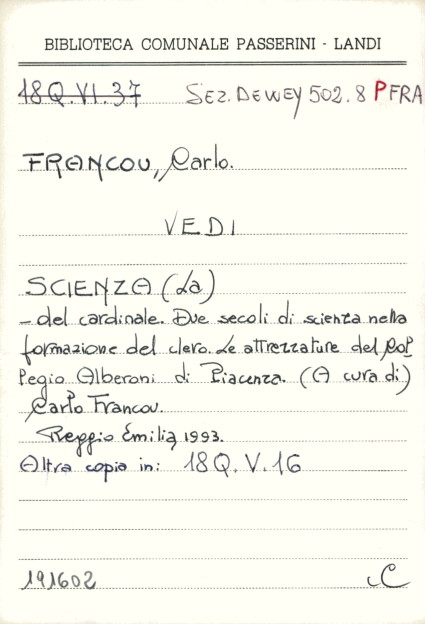 BIBLIOTECA COMUNALE PASSERINI - LANDI
18Q.VI.37 SEZ. DEWEY 502.8 P FRA
FRANCOU, Carlo.
VEDI
SCIENZA (La)
- del cardinale. Due secoli di scienza nella
formazione del clero. Le attrezzature del Col
legio Alberoni di Piacenza. (A cura di)
Carlo Francou.
Reggio Emilia, 1993.
Altra copia in: 18Q.V.16
191602 C